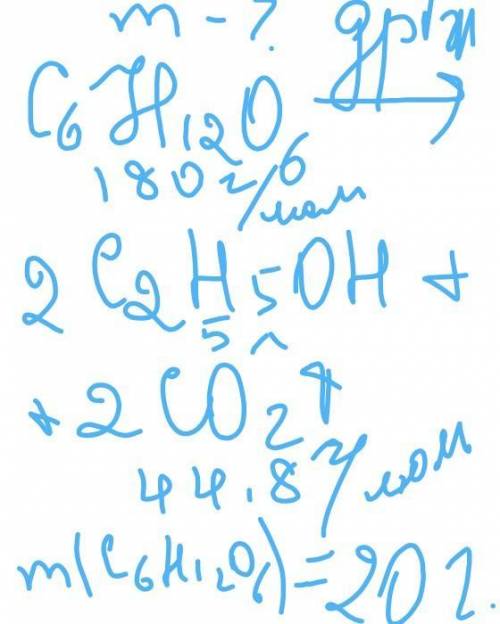 m - ?
C6H12O6 →
180 г/мол
2 C2H5OH +
5 л
+ 2 CO2↑
44.8 л/мол
m(C6H12O6) = 20 г.